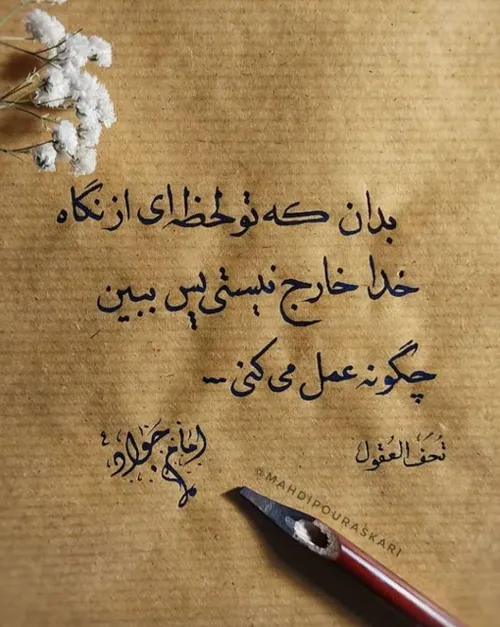 بدان که تو لحظه‌ای از نگاه
خدا خارج نیستی پس ببین
چگونه عمل می‌کنی...
تُحَفُ العُقول
امام جواد
@MAHDIPOURASKARI